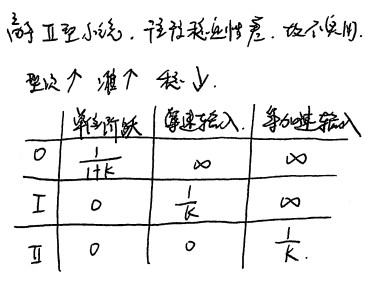 高于Ⅱ型系统,往往稳定性差,故不实用.
型次↑ 准↑ 稳↓.
单位阶跃 等速输入. 等加速输入
0 1/1+K ∞ ∞
Ⅰ 0 1/K ∞
Ⅱ 0 0 1/K.